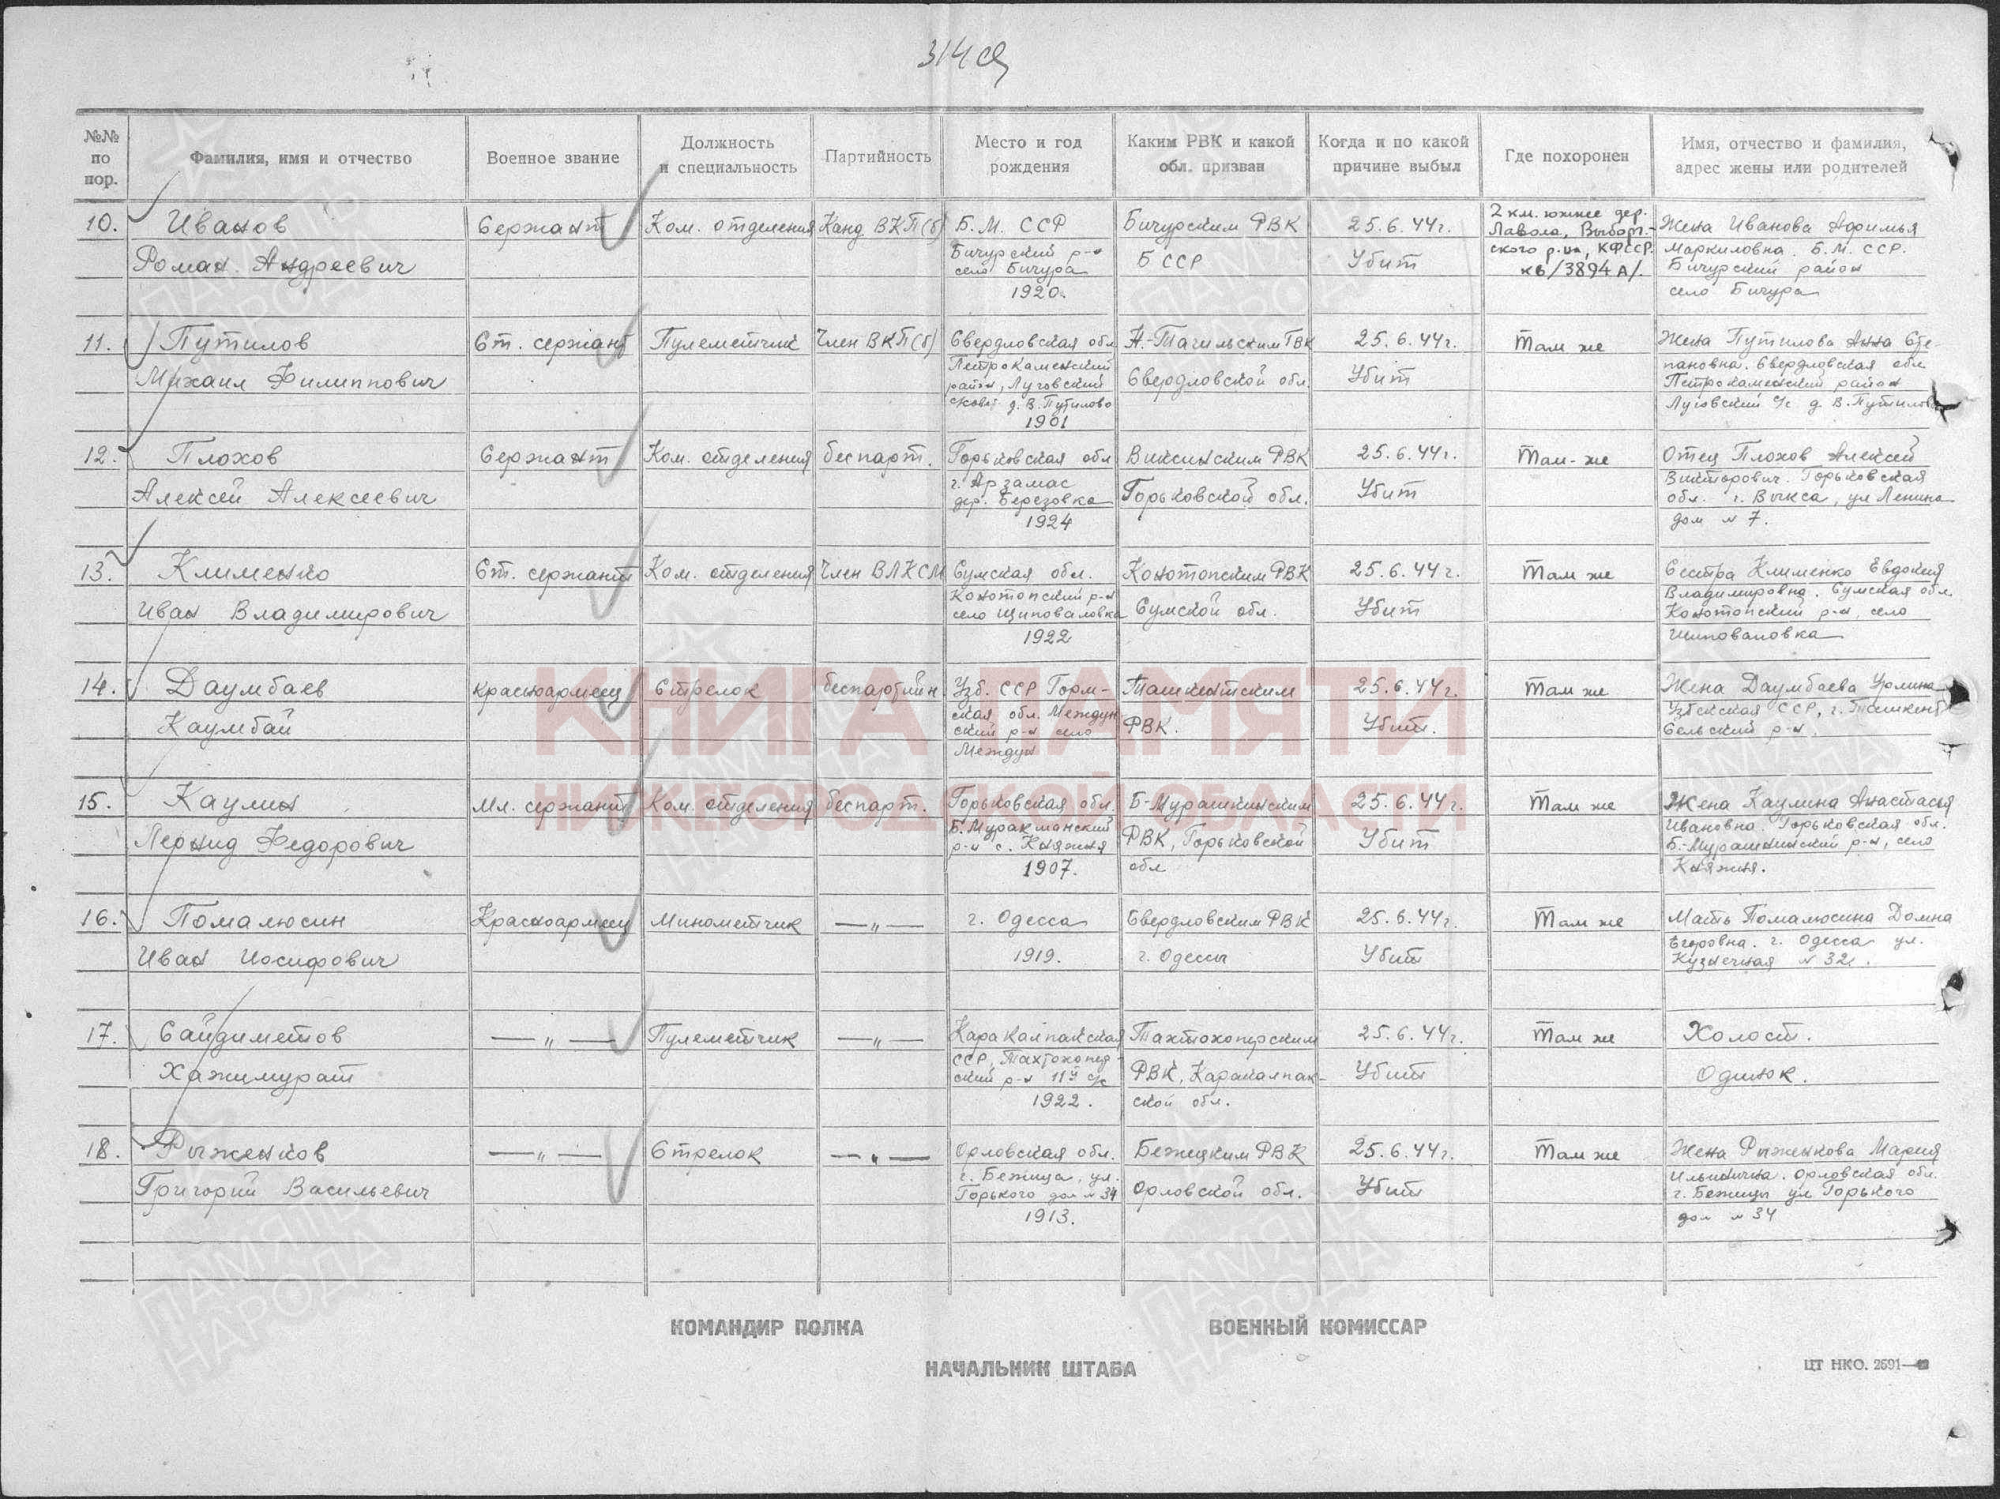 314 сд
№№ по пор.
Фамилия, имя и отчество
Военное звание
Должность и специальность
Партийность
Место и год рождения
Каким РВК и какой обл. призван
Когда и по какой причине выбыл
Где похоронен
Имя, отчество и фамилия, адрес жены или родителей
10. Иванов Сержант Ком. отделения Канд ВКП(б) Б.М. ССР Бичурским РВК 25.6.44г. 2 км. южнее дер. Лавола, Выборгского р-на, КФССР. кв/3894А/. Жена Иванова Афимья
Роман Андреевич Бичурский р-н село Бичура 1920. Б ССР Убит Маркиловна. Б.М. ССР. Бичурский район село Бичура
11. Путилов Ст. сержант Пулеметчик Член ВКП(б) Свердловская обл Н.-Тагильским ГВК 25.6.44г. Там же Жена Путилова Анна Сте-
Михаил Филиппович Петрокаменский район, Луговский совет д. В. Путилово 1901 Свердловской обл. Убит пановна. Свердловская обл Петрокаменский район Луговский с/с д. В. Путилово
12. Плохов Сержант Ком. отделения беспарт. Горьковская обл Виксинским РВК 25.6.44г. Там-же Отец Плохов Алексей
Алексей Алексеевич г. Арзамас дер. Березовка 1924 Горьковской обл. Убит Викторович. Горьковская обл. г. Выкса, ул Ленина дом № 7.
13. Клименко Ст. сержант Ком. отделения Член ВЛКСМ Сумская обл. Конотопским РВК 25.6.44г. Там же Сестра Клименко Евдокия
Иван Владимирович Конотопский р-н село Шиповаловка 1922 Сумской обл. Убит Владимировна. Сумская обл. Конотопский р-н, село Шиповаловка
14. Даумбаев Красноармеец Стрелок беспартийн. Узб. ССР Ташкентским 25.6.44г. Там же Жена Даумбаева
Каумбай обл. р-н село РВК. Убит. Узбекская ССР, г. Ташкент Сельский р-н.
15. Каулин Мл. сержант Ком. отделения беспарт. Горьковская обл. Б-Мурашкинским 25.6.44г. Там же Жена Каулина Анастасья
Леонид Федорович Б. Муракманский р-н с. Княжня 1907. РВК, Горьковской обл Убит Ивановна. Горьковская обл. Б.-Мурашкинский р-н, село Княжня.
16. Помалюсин Красноармеец Минометчик —„— г. Одесса Свердловским РВК 25.6.44г. Там же Мать Помалюсина Домна
Иван Иосифович 1919. г. Одессы Убит Егоровна. г. Одесса ул. Кузнечная № 32.
17. Сайдиметов —„— Пулеметчик —„— Каракалпакская Тахтокоперским 25.6.44г. Там же Холост.
Хажимурат ССР, р-н с/с 1922. РВК, Каракалпакской обл. Убит Одинок.
18. Рыженков —„— Стрелок —„— Орловская обл. Бежецким РВК 25.6.44г. Там же Жена Рыженкова Мария
Григорий Васильевич г. Бежица, ул. Горького дом № 34 1913. Орловской обл. Убит Ильинична. Орловская обл. г. Бежицы ул Горького дом № 34
КНИГА ПАМЯТИ
НИЖЕГОРОДСКОЙ ОБЛАСТИ
ПАМЯТЬ НАРОДА
КОМАНДИР ПОЛКА
ВОЕННЫЙ КОМИССАР
НАЧАЛЬНИК ШТАБА
ЦТ НКО. 2591—